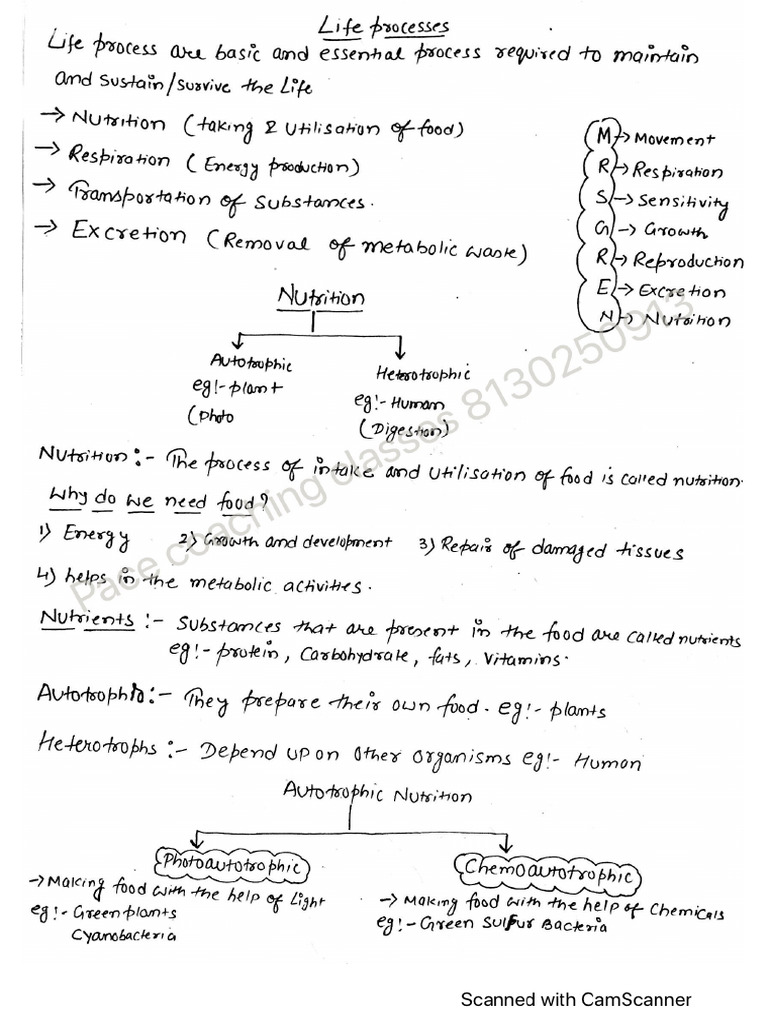 Life processes
Life process are basic and essential process required to maintain
and sustain/survive the Life
→ Nutrition (taking & utilisation of food)
→ Respiration (Energy production)
→ Transportation of substances.
→ Excretion (Removal of metabolic waste)
M → Movement
R → Respiration
S → Sensitivity
G → Growth
R → Reproduction
E → Excretion
N → Nutrition
Nutrition
Autotrophic
eg!- plant
(Photo
Heterotrophic
eg!- Human
(Digestion)
Nutrition :- The process of intake and utilisation of food is called nutrition.
Why do we need food?
1) Energy 2) Growth and development 3) Repair of damaged tissues
4) helps in the metabolic activities.
Nutrients :- Substances that are present in the food are called nutrients
eg!- protein, Carbohydrate, fats, vitamins.
Autotrophs :- They prepare their own food. eg!- plants
Heterotrophs :- Depend upon other organisms eg!- Human
Autotrophic Nutrition
Photoautotrophic
→ Making food with the help of Light
eg!- Green plants
Cyanobacteria
Chemoautotrophic
→ Making food with the help of Chemicals
eg!- Green Sulfur Bacteria
Pace coaching classes 8130250913
Scanned with CamScanner